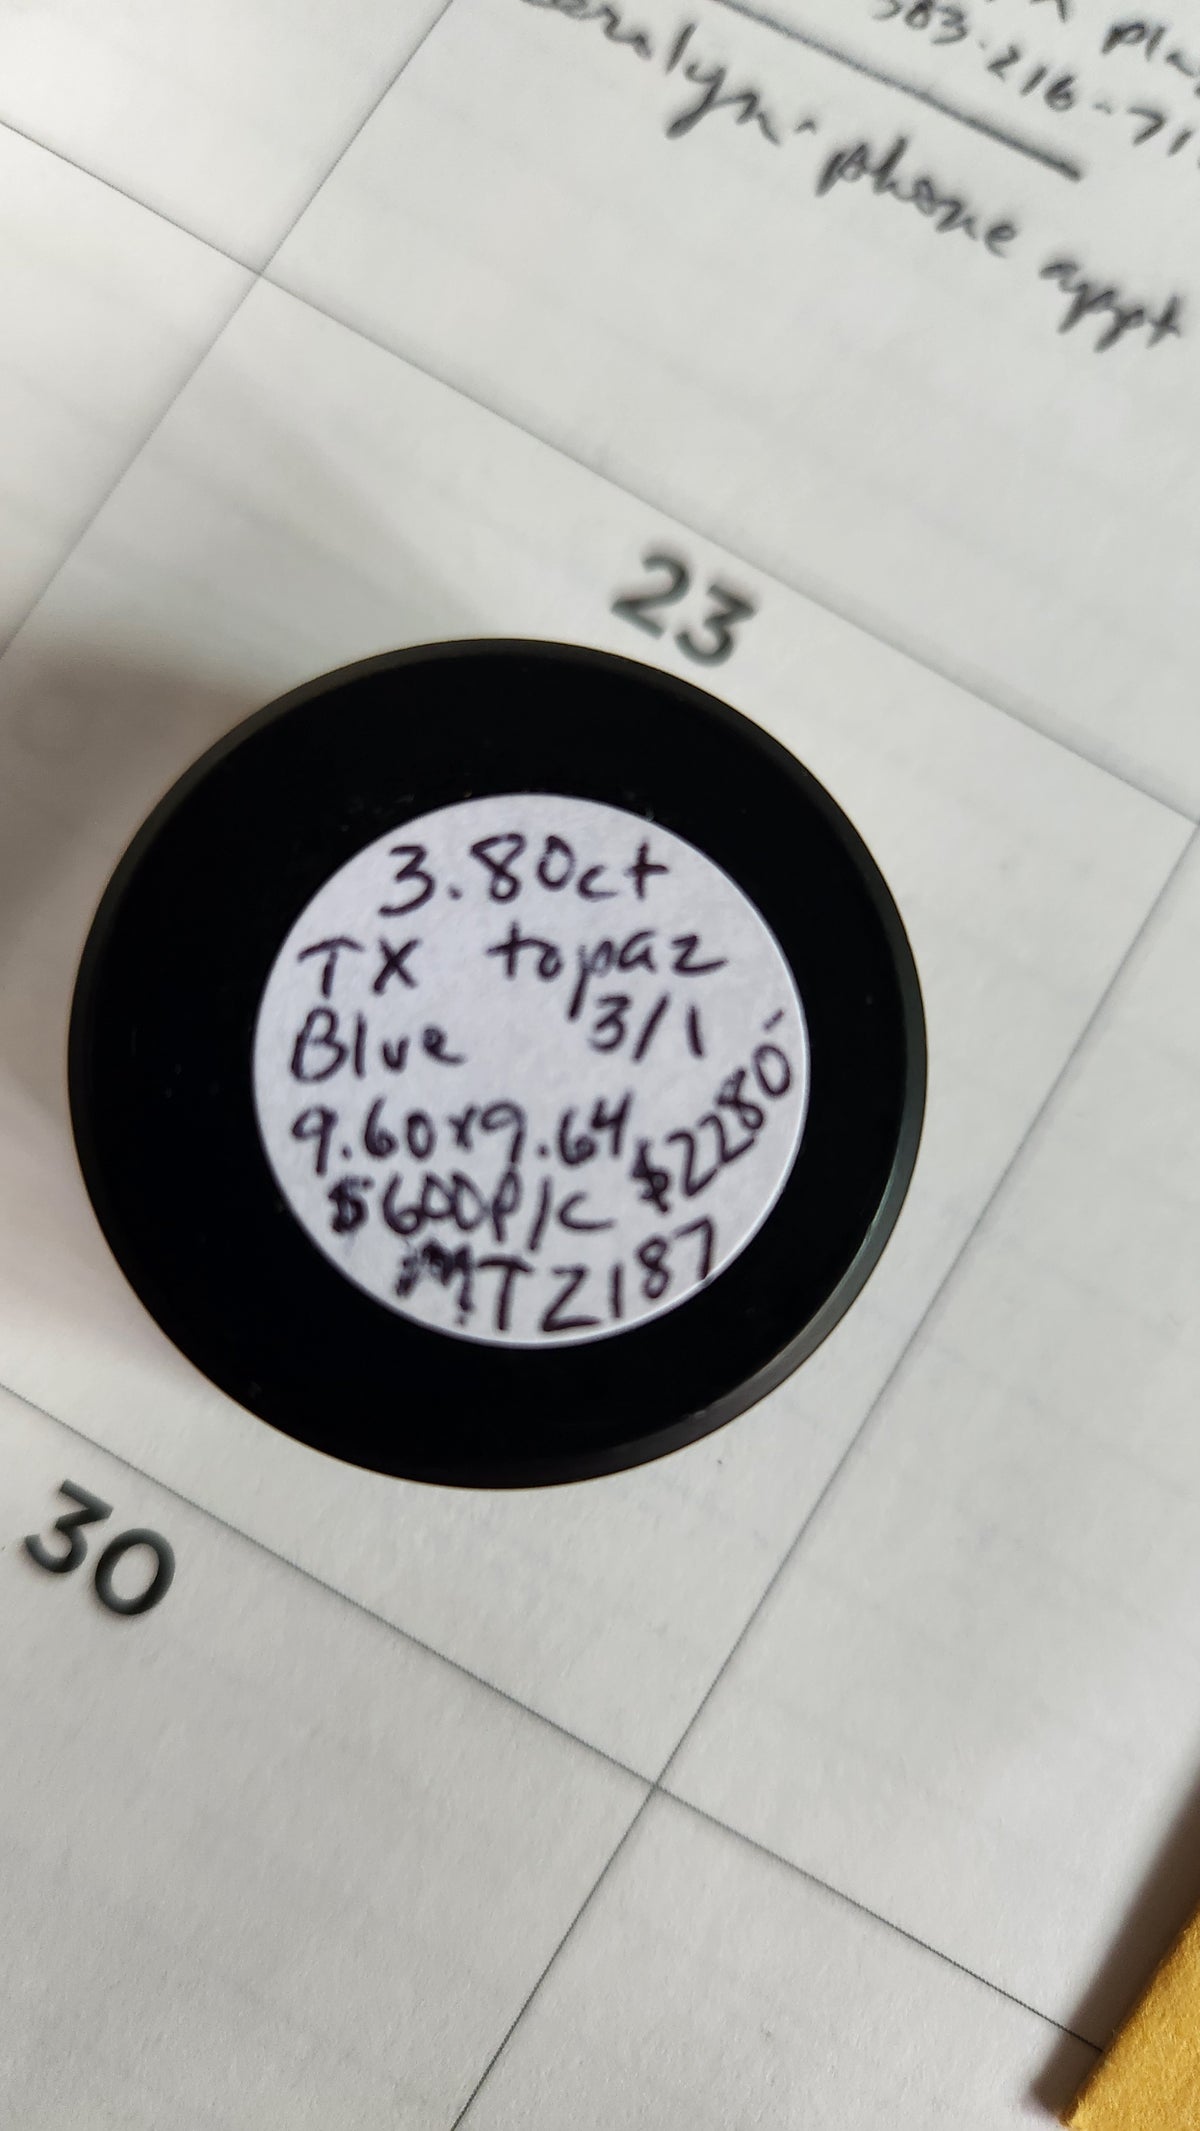 pla
383-216-71
eralyn- phone appt
23
3.80ct
TX topaz
Blue 3/1
9.60x9.64 $2280-
$600P/C
MTZ187
30